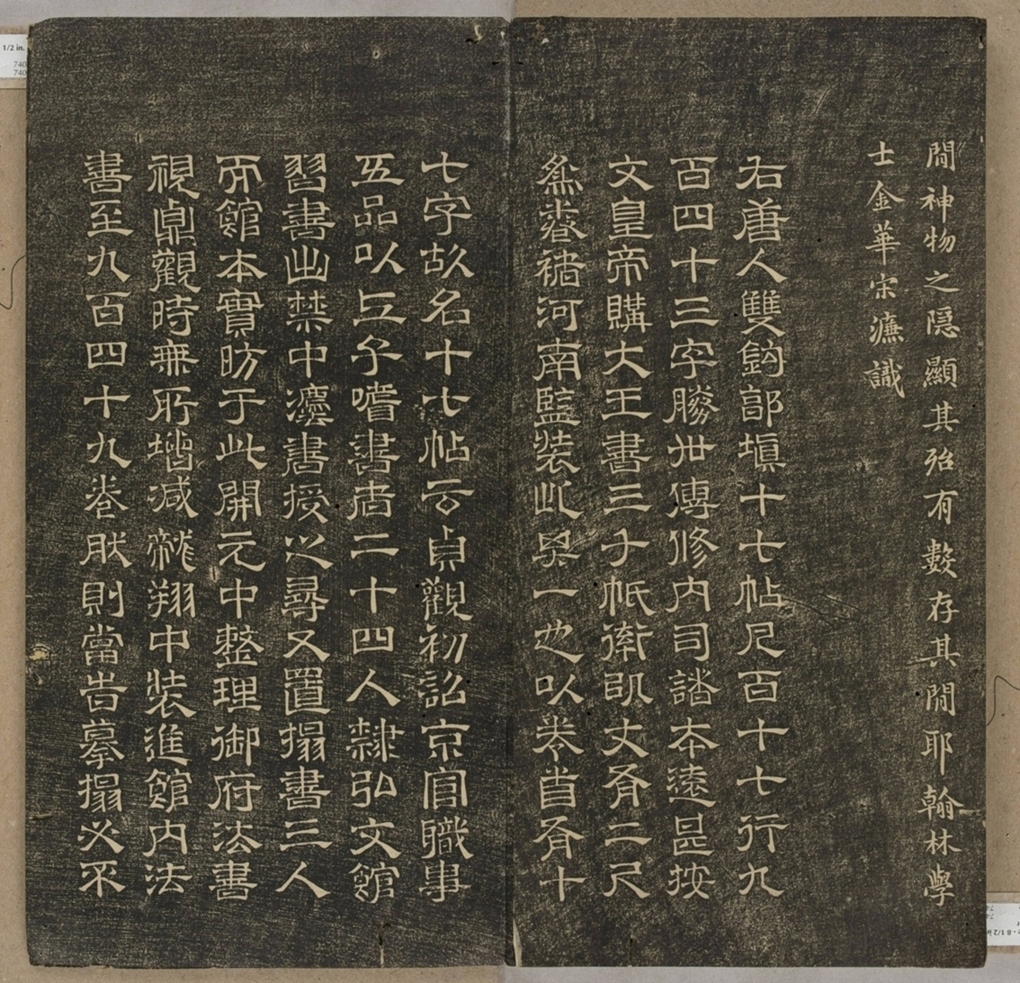 間神物之隱顯其殆有數存其間耶翰林學
士金華宋濂識
右唐人雙鈎部塡十七帖凡百十七行九
百四十三字勝世傳修内司譜本遠甚按
文皇帝購大王書三千紙率以丈有二尺
爲卷褚河南監裝此其一也以卷首有十
七字故名十七帖云貞觀初詔京官職事
五品以上子嗜書者二十四人隸弘文館
習書出禁中灋書授之尋又置搨書三人
而館本實昉于此開元中整理御府法書
視貞觀時無所增減龍翔中裝進館内法
書至九百四十九卷然則當旹摹搨必不
1/2 in.
740
740